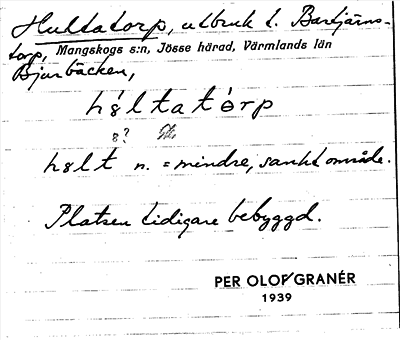 Hultatorp, utbruk t. Bartjärns-
torp, Mangskogs s:n, Jösse härad, Värmlands län
Bjurbäcken,
hɵ́ltatɵ̀rp
8?
hɵlt n. = mindre, sankt område.
Platsen tidigare bebyggd.
PER OLOF GRANÉR
1939